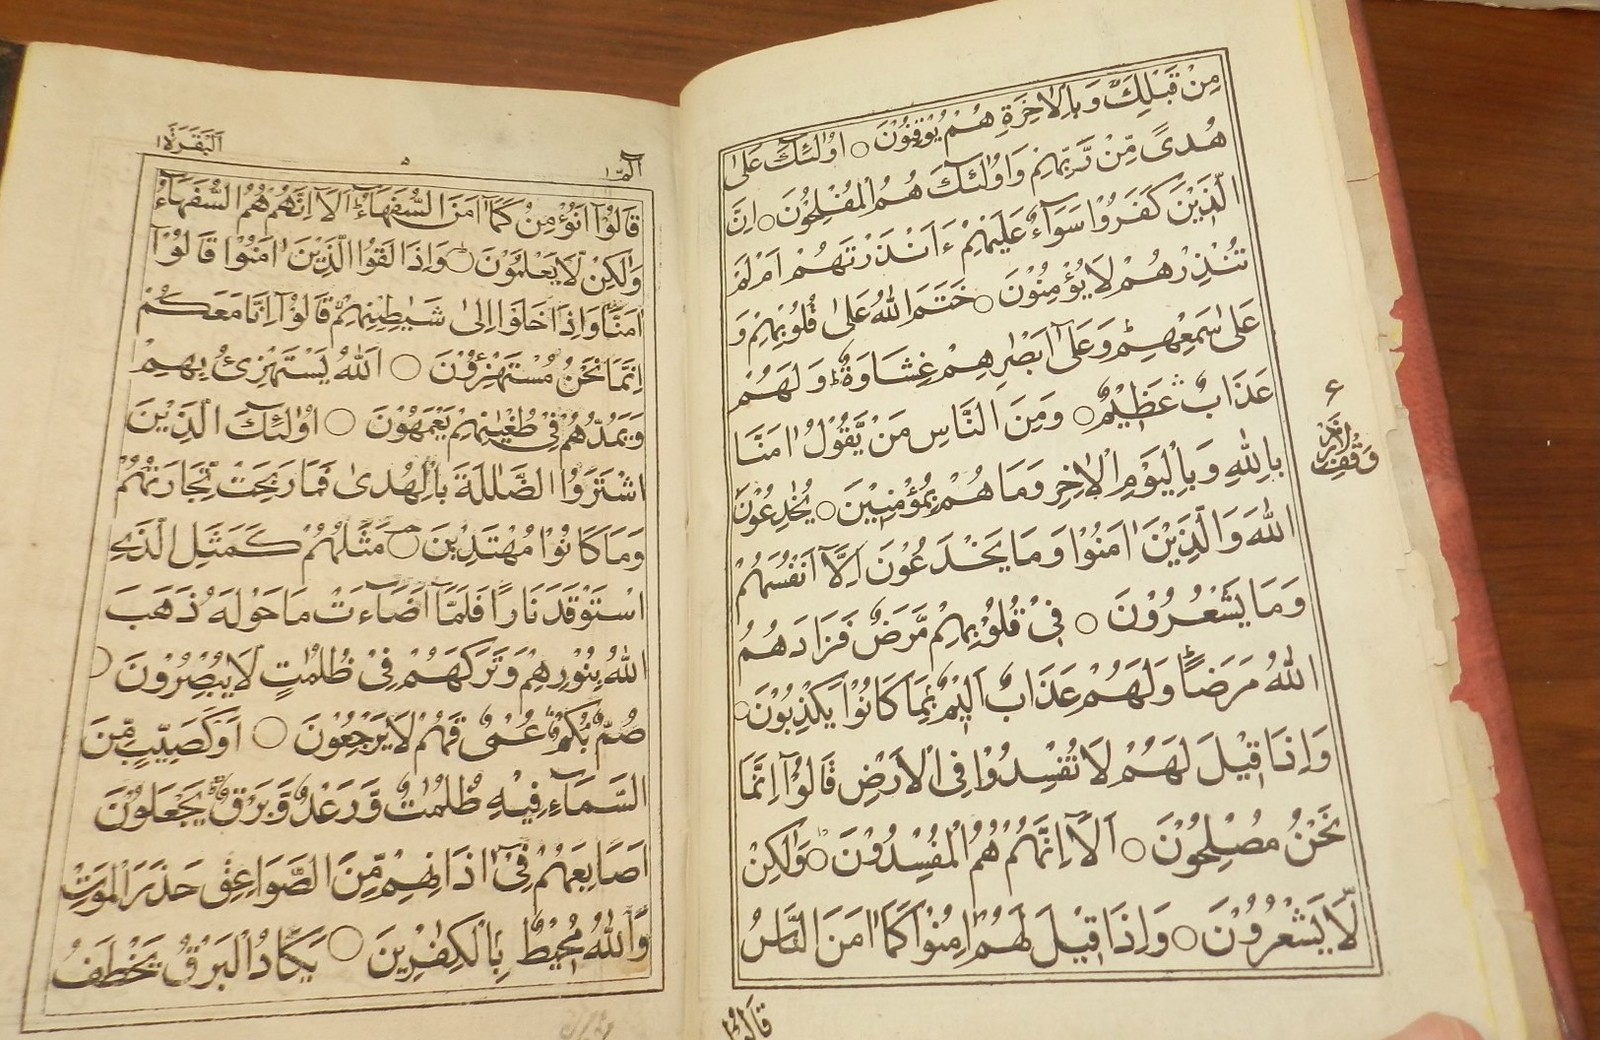 مِنْ قَبْلِكَ وَبِالْاٰخِرَةِ هُمْ يُوْقِنُوْنَ ○ اُولٰٓئِكَ عَلٰى
هُدًى مِّنْ رَّبِّهِمْ وَاُولٰٓئِكَ هُمُ الْمُفْلِحُوْنَ ○ اِنَّ
الَّذِيْنَ كَفَرُوْا سَوَآءٌ عَلَيْهِمْ ءَاَنْذَرْتَهُمْ اَمْ لَمْ
تُنْذِرْهُمْ لَا يُؤْمِنُوْنَ ○ خَتَمَ اللّٰهُ عَلٰى قُلُوْبِهِمْ وَ
عَلٰى سَمْعِهِمْ وَعَلٰٓى اَبْصَارِهِمْ غِشَاوَةٌ وَلَهُمْ
عَذَابٌ عَظِيْمٌ ○ وَمِنَ النَّاسِ مَنْ يَّقُوْلُ اٰمَنَّا
بِاللّٰهِ وَبِالْيَوْمِ الْاٰخِرِ وَمَا هُمْ بِمُؤْمِنِيْنَ ○ يُخٰدِعُوْنَ
اللّٰهَ وَالَّذِيْنَ اٰمَنُوْا وَمَا يَخْدَعُوْنَ اِلَّآ اَنْفُسَهُمْ
وَمَا يَشْعُرُوْنَ ○ فِيْ قُلُوْبِهِمْ مَّرَضٌ فَزَادَهُمُ
اللّٰهُ مَرَضًا وَلَهُمْ عَذَابٌ اَلِيْمٌ بِمَا كَانُوْا يَكْذِبُوْنَ ○
وَاِذَا قِيْلَ لَهُمْ لَا تُفْسِدُوْا فِي الْاَرْضِ قَالُوْٓا اِنَّمَا
نَحْنُ مُصْلِحُوْنَ ○ اَلَآ اِنَّهُمْ هُمُ الْمُفْسِدُوْنَ ○ وَلٰكِنْ
لَّا يَشْعُرُوْنَ ○ وَاِذَا قِيْلَ لَهُمْ اٰمِنُوْا كَمَآ اٰمَنَ النَّاسُ
قَالُوْٓا
ع
وقف لازم
الٓمّٓ ١
٥
اَلْبَقَرَة
قَالُوْٓا اَنُؤْمِنُ كَمَآ اٰمَنَ السُّفَهَآءُ اَلَآ اِنَّهُمْ هُمُ السُّفَهَآءُ
وَلٰكِنْ لَّا يَعْلَمُوْنَ ○ وَاِذَا لَقُوا الَّذِيْنَ اٰمَنُوْا قَالُوْٓا
اٰمَنَّا وَاِذَا خَلَوْا اِلٰى شَيٰطِيْنِهِمْ قَالُوْٓا اِنَّا مَعَكُمْ
اِنَّمَا نَحْنُ مُسْتَهْزِءُوْنَ ○ اَللّٰهُ يَسْتَهْزِئُ بِهِمْ
وَيَمُدُّهُمْ فِيْ طُغْيٰنِهِمْ يَعْمَهُوْنَ ○ اُولٰٓئِكَ الَّذِيْنَ
اشْتَرَوُا الضَّلٰلَةَ بِالْهُدٰى فَمَا رَبِحَتْ تِّجَارَتُهُمْ
وَمَا كَانُوْا مُهْتَدِيْنَ ○ مَثَلُهُمْ كَمَثَلِ الَّذِي
اسْتَوْقَدَ نَارًا فَلَمَّآ اَضَآءَتْ مَا حَوْلَهٗ ذَهَبَ
اللّٰهُ بِنُوْرِهِمْ وَتَرَكَهُمْ فِيْ ظُلُمٰتٍ لَّا يُبْصِرُوْنَ ○
صُمٌّ بُكْمٌ عُمْيٌ فَهُمْ لَا يَرْجِعُوْنَ ○ اَوْ كَصَيِّبٍ مِّنَ
السَّمَآءِ فِيْهِ ظُلُمٰتٌ وَّرَعْدٌ وَّبَرْقٌ يَجْعَلُوْنَ
اَصَابِعَهُمْ فِيْٓ اٰذَانِهِمْ مِّنَ الصَّوَاعِقِ حَذَرَ الْمَوْتِ
وَاللّٰهُ مُحِيْطٌ بِالْكٰفِرِيْنَ ○ يَكَادُ الْبَرْقُ يَخْطَفُ